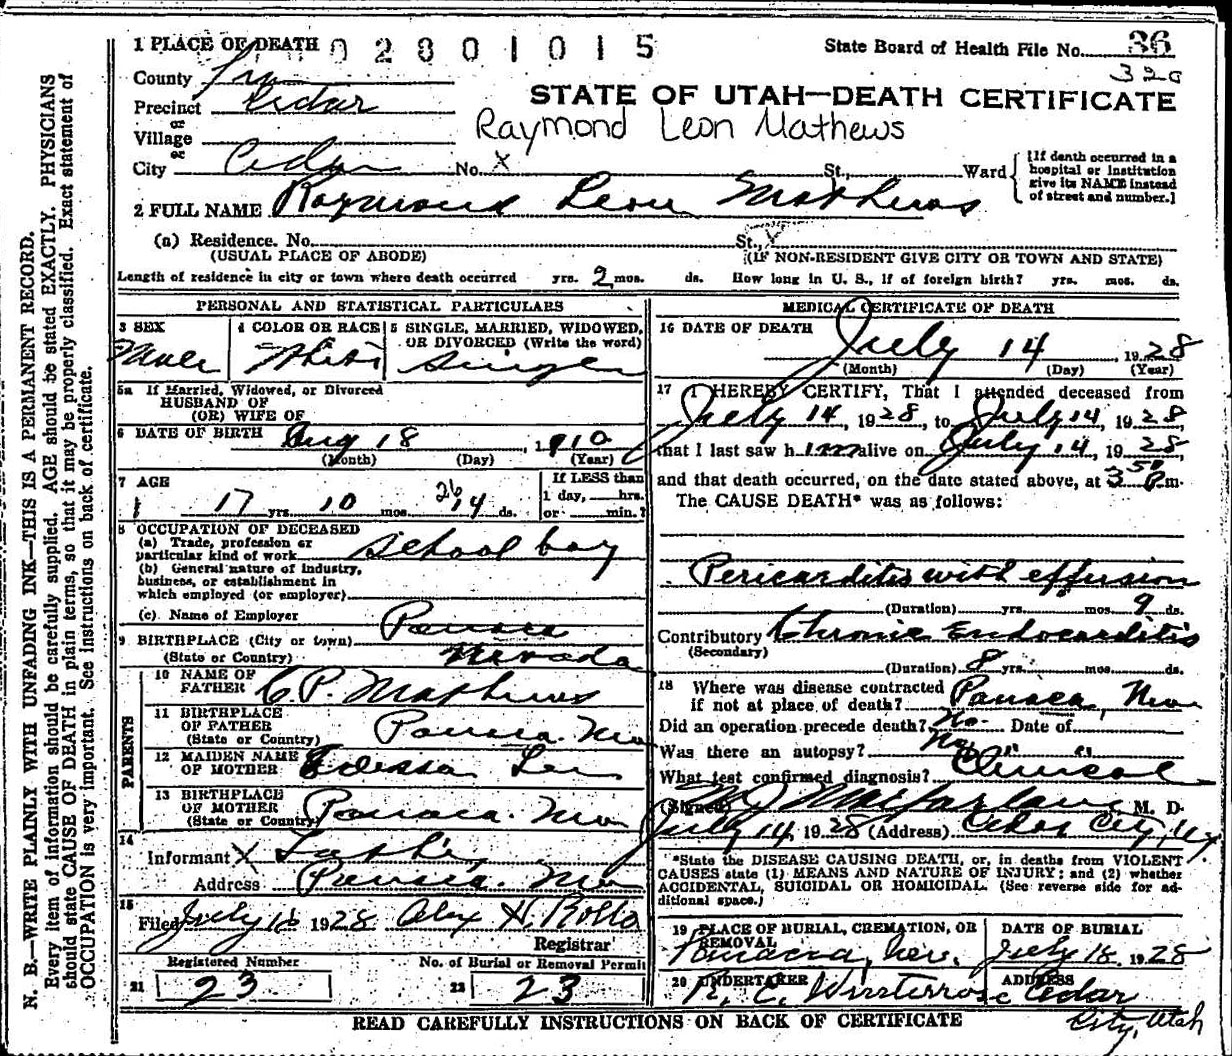 N. B.—WRITE PLAINLY WITH UNFADING INK—THIS IS A PERMANENT RECORD.
Every item of information should be carefully supplied. AGE should be stated EXACTLY. PHYSICIANS
should state CAUSE OF DEATH in plain terms, so that it may be properly classified. Exact statement of
OCCUPATION is very important. See instructions on back of certificate.
1 PLACE OF DEATH 02801015 State Board of Health File No. 36
County Iron 320
Precinct Cedar STATE OF UTAH—DEATH CERTIFICATE
or
Village Raymond Leon Mathews
or
City Cedar No. X St., Ward [If death occurred in a hospital or institution give its NAME instead of street and number.]
2 FULL NAME Raymond Leon Mathews
(a) Residence. No. St.,
(USUAL PLACE OF ABODE) (IF NON-RESIDENT GIVE CITY OR TOWN AND STATE)
Length of residence in city or town where death occurred yrs. 2 mos. ds. How long in U. S., if of foreign birth? yrs. mos. ds.
PERSONAL AND STATISTICAL PARTICULARS
3 SEX 4 COLOR OR RACE 5 SINGLE, MARRIED, WIDOWED,
OR DIVORCED (Write the word)
Male White Single
5a If Married, Widowed, or Divorced
HUSBAND OF
(OR) WIFE OF
6 DATE OF BIRTH Aug 18, 1910
(Month) (Day) (Year)
7 AGE If LESS than
1 day, hrs.
17 yrs. 10 mos. 26 ds. or min.?
8 OCCUPATION OF DECEASED
(a) Trade, profession or
particular kind of work School boy
(b) General nature of industry,
business, or establishment in
which employed (or employer)
(c) Name of Employer
9 BIRTHPLACE (City or town) Panaca
(State or Country) Nevada
PARENTS
10 NAME OF
FATHER C. P. Mathews
11 BIRTHPLACE
OF FATHER
(State or Country) Panaca. Nev
12 MAIDEN NAME
OF MOTHER Edessa Lee
13 BIRTHPLACE
OF MOTHER
(State or Country) Panaca. Nev
14
Informant X
Address Panaca. Nev
15
Filed July 16 1928 Alex H. Rollo
Registrar
Registered Number No. of Burial or Removal Permit
21 23 22 23
MEDICAL CERTIFICATE OF DEATH
16 DATE OF DEATH
July 14, 1928
(Month) (Day) (Year)
17 I HEREBY CERTIFY, That I attended deceased from
July 14, 1928, to July 14, 1928
that I last saw him alive on July 14, 1928,
and that death occurred, on the date stated above, at 3 50 P.m.
The CAUSE DEATH* was as follows:
Pericarditis with effusion
(Duration) yrs. mos. 9 ds.
Contributory Chronic Endocarditis
(Secondary)
(Duration) 8 yrs. mos. ds.
18 Where was disease contracted
if not at place of death? Panaca, Nev
Did an operation precede death? No. Date of
Was there an autopsy? No
What test confirmed diagnosis? Clinical
(Signed) Macfarlane M. D.
July 14, 1928 (Address) Cedar City, Ut
*State the DISEASE CAUSING DEATH, or, in deaths from VIOLENT
CAUSES state (1) MEANS AND NATURE OF INJURY; and (2) whether
ACCIDENTAL, SUICIDAL OR HOMICIDAL. (See reverse side for ad-
ditional space.)
19 PLACE OF BURIAL, CREMATION, OR REMOVAL DATE OF BURIAL
Panaca, Nev. July 16, 1928
20 UNDERTAKER ADDRESS
R. C. Winterrose Cedar
City, Utah
READ CAREFULLY INSTRUCTIONS ON BACK OF CERTIFICATE